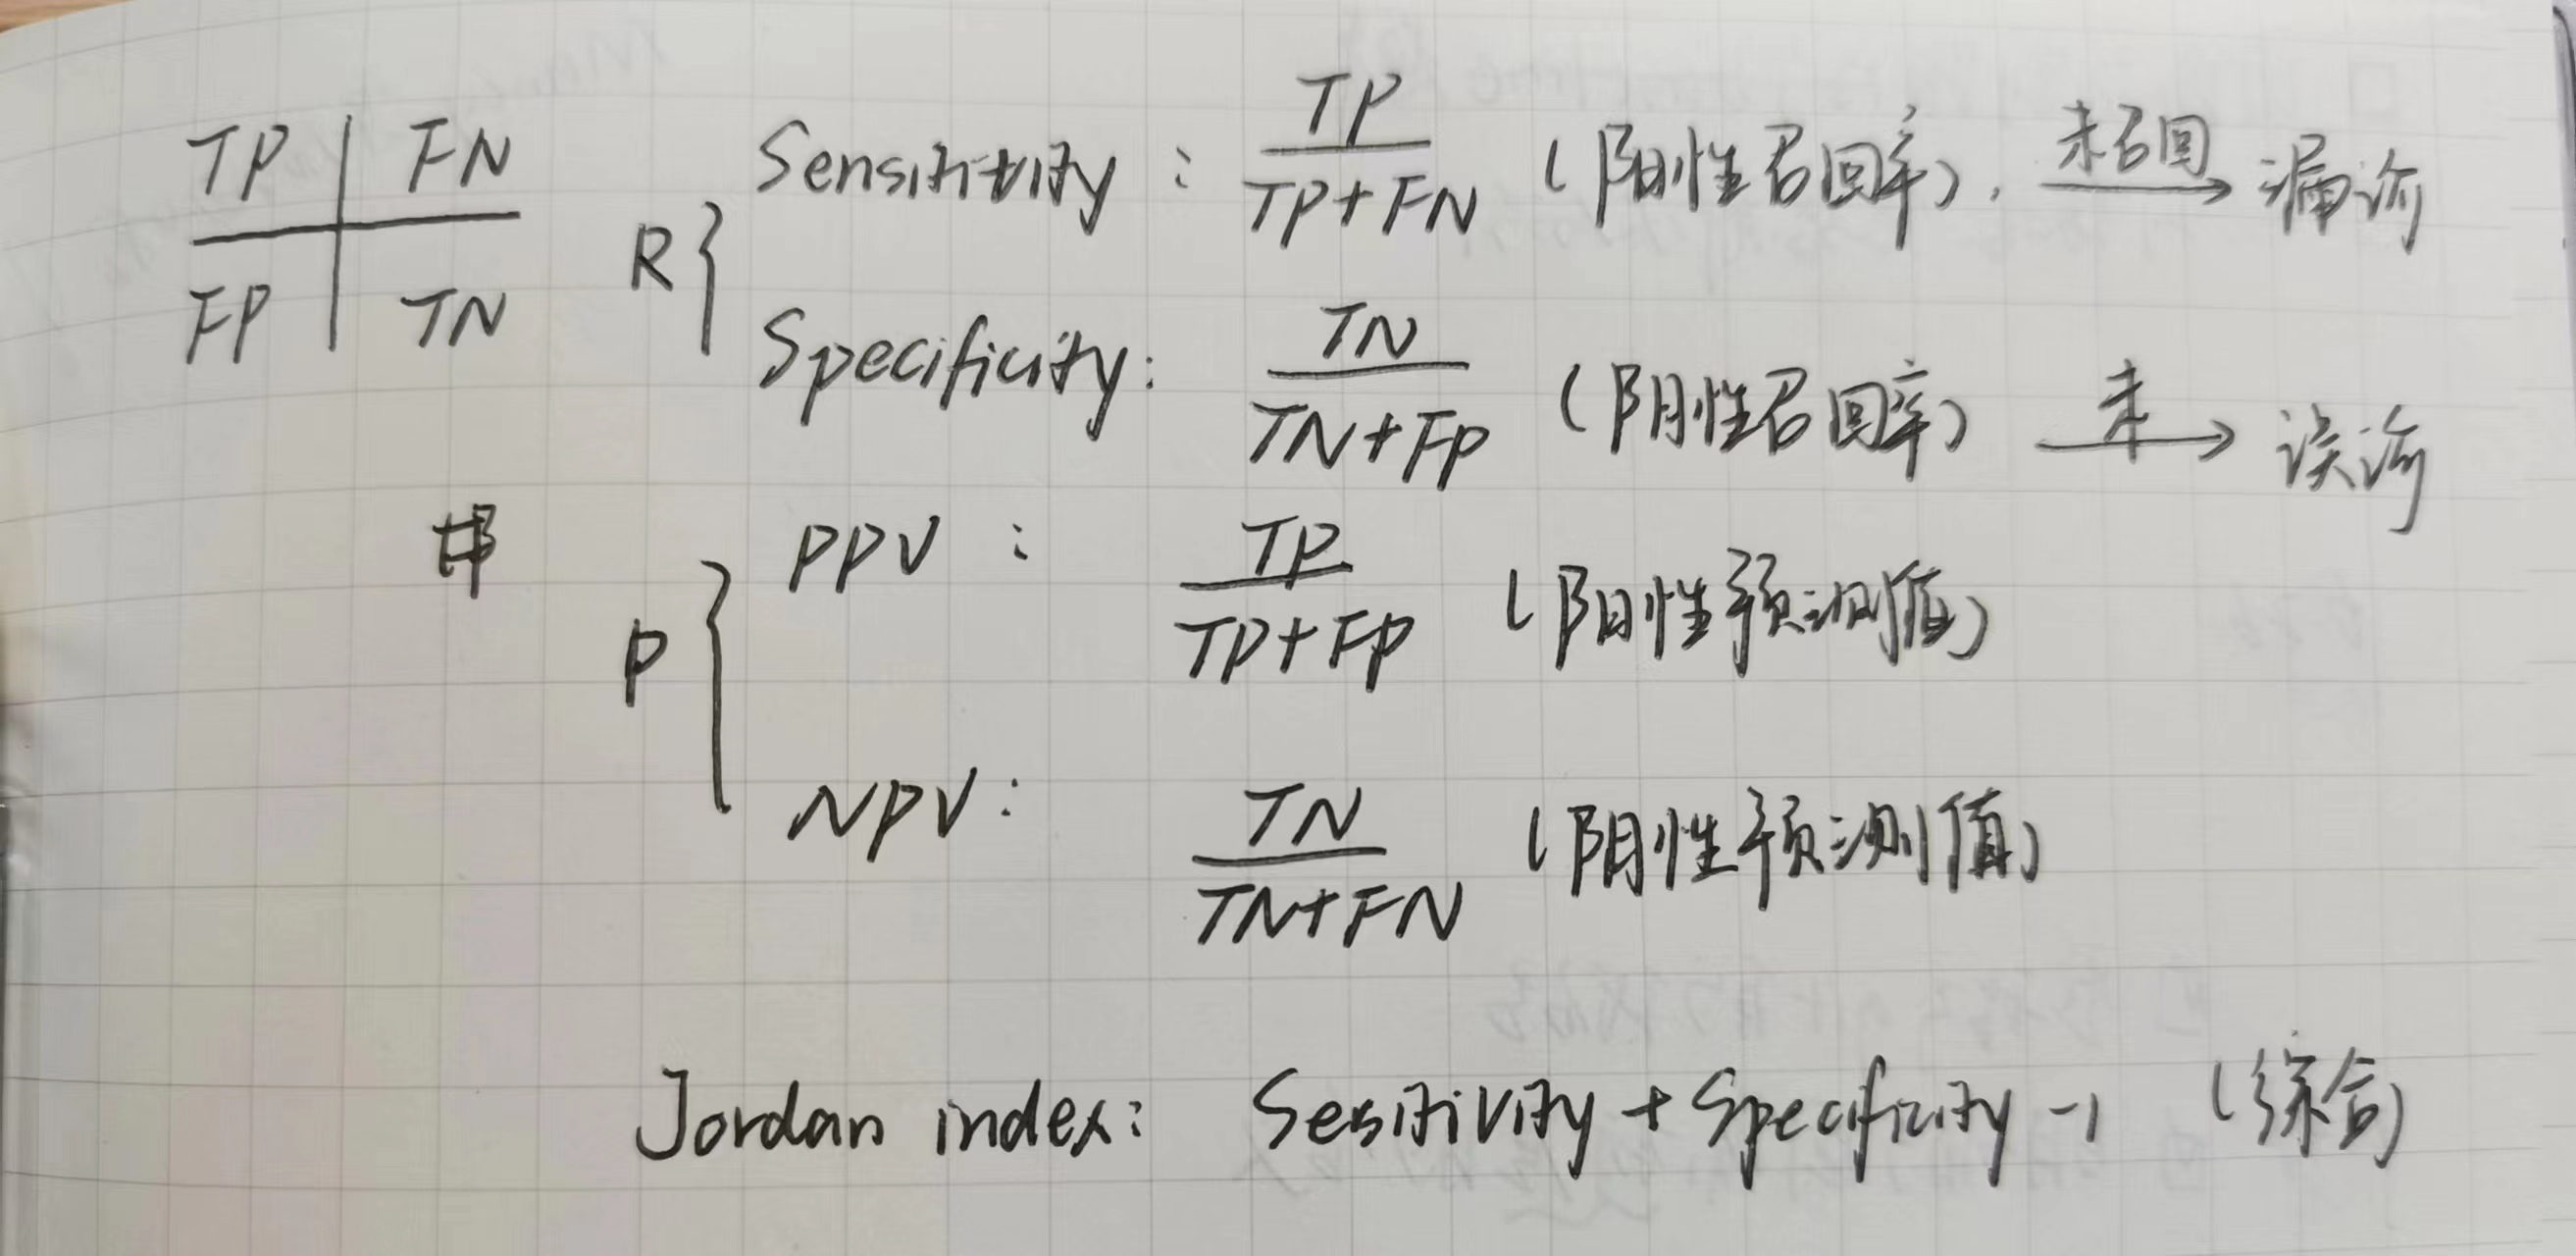 TP FN
FP TN
R { Sensitivity : TP / TP+FN (阳性召回率), 未召回 → 漏诊
Specificity: TN / TN+FP (阴性召回率) 未 → 误诊
P { PPV : TP / TP+FP (阳性预测值)
NPV: TN / TN+FN (阴性预测值)
Jordan index: Sesitivity + Specificity -1 (综合)